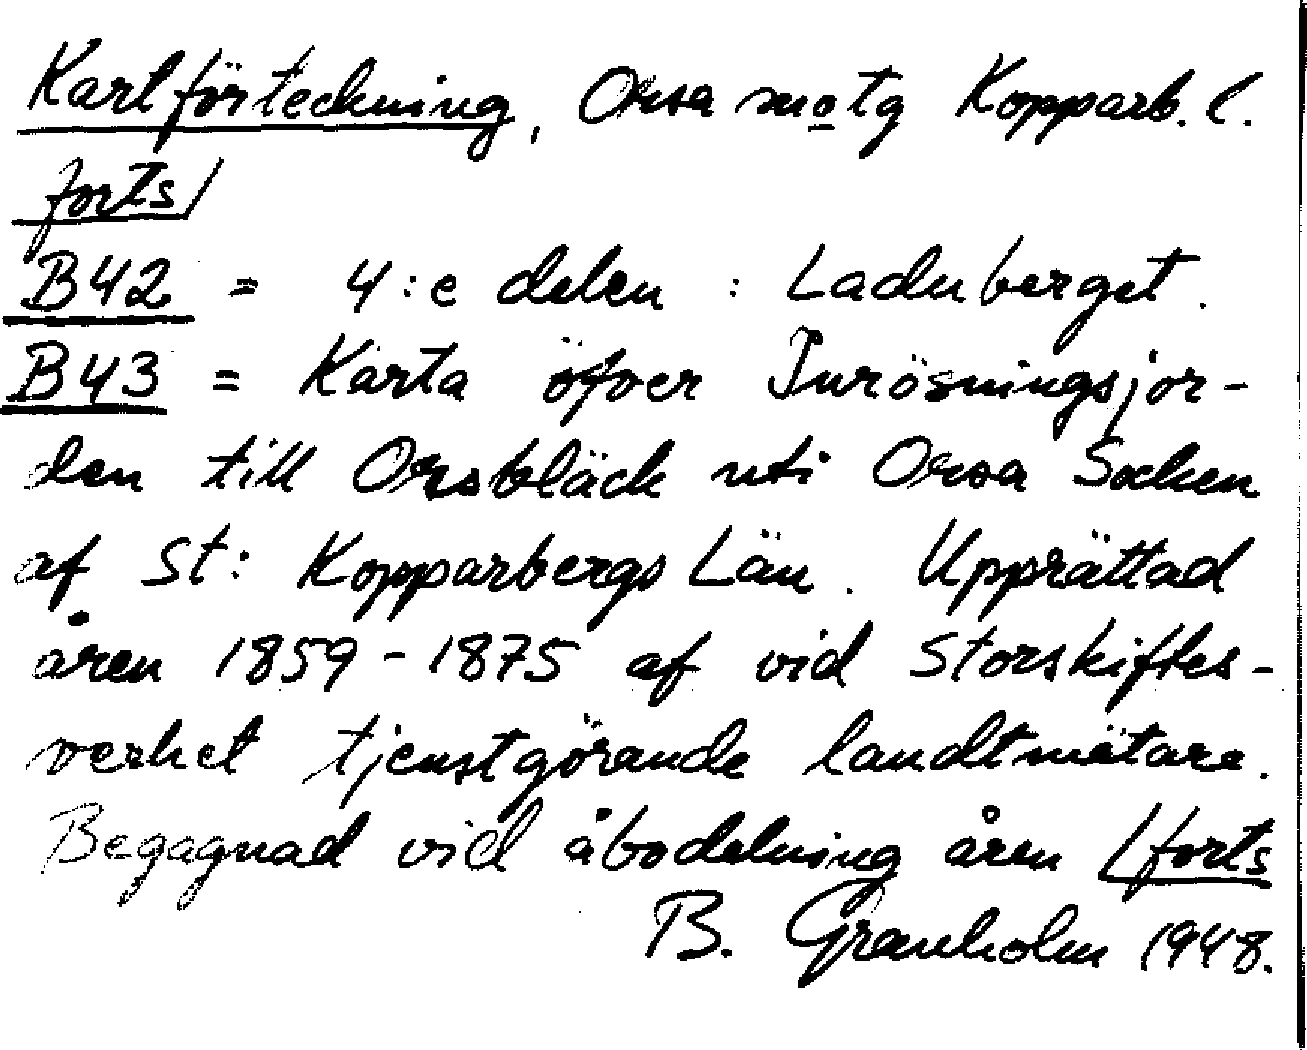 Kartförteckning, Orsa motg Kopparb. l.
forts/
B42 = 4:e delen : Laduberget.
B43 = Karta öfver Inrösningsjor-
den till Orsbläck uti Orsa Socken
af St: Kopparbergs Län. Upprättad
åren 1859-1875 af vid Storskiftes-
verket tjenstgörande landtmätare.
Begagnad vid åbodelning åren /forts
B. Granholm 1948.